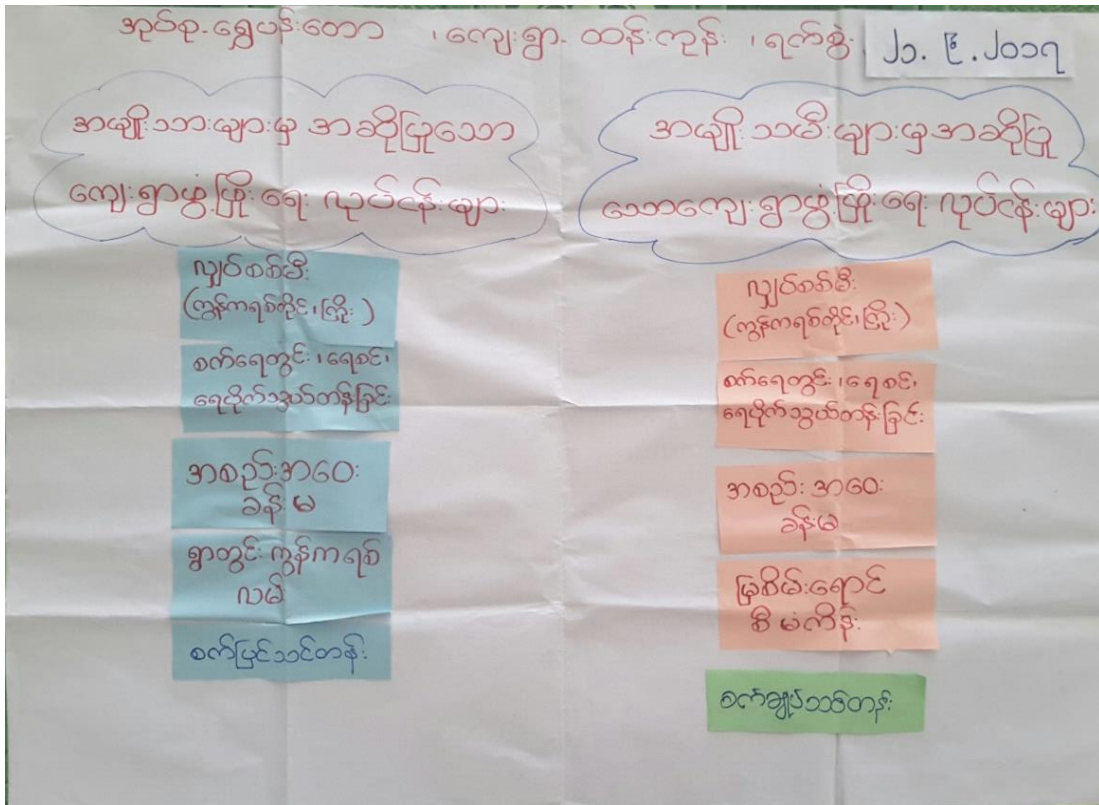 အုပ်စု-ရွှေပန်းတော ၊ကျေးရွာ-ထန်းကုန်း ၊ရက်စွဲ ၂၁.၆.၂၀၁၇
အမျိုးသားများမှ အဆိုပြုသော
ကျေးရွာဖွံ့ဖြိုးရေး လုပ်ငန်းများ
လျှပ်စစ်မီး
(ကွန်ကရစ်တိုင်၊ကြိုး)
စက်ရေတွင်း၊ရေစင်၊
ရေပိုက်သွယ်တန်းခြင်း
အစည်းအဝေး
ခန်းမ
ရွာတွင်းကွန်ကရစ်
လမ်း
စက်ပြင်သင်တန်း
အမျိုးသမီးများမှအဆိုပြု
သောကျေးရွာဖွံ့ဖြိုးရေး လုပ်ငန်းများ
လျှပ်စစ်မီး
(ကွန်ကရစ်တိုင်၊ကြိုး)
စက်ရေတွင်း၊ရေစင်၊
ရေပိုက်သွယ်တန်းခြင်း
အစည်းအဝေး
ခန်းမ
မြစိမ်းရောင်
စီမံကိန်း
စက်ချုပ်သင်တန်း